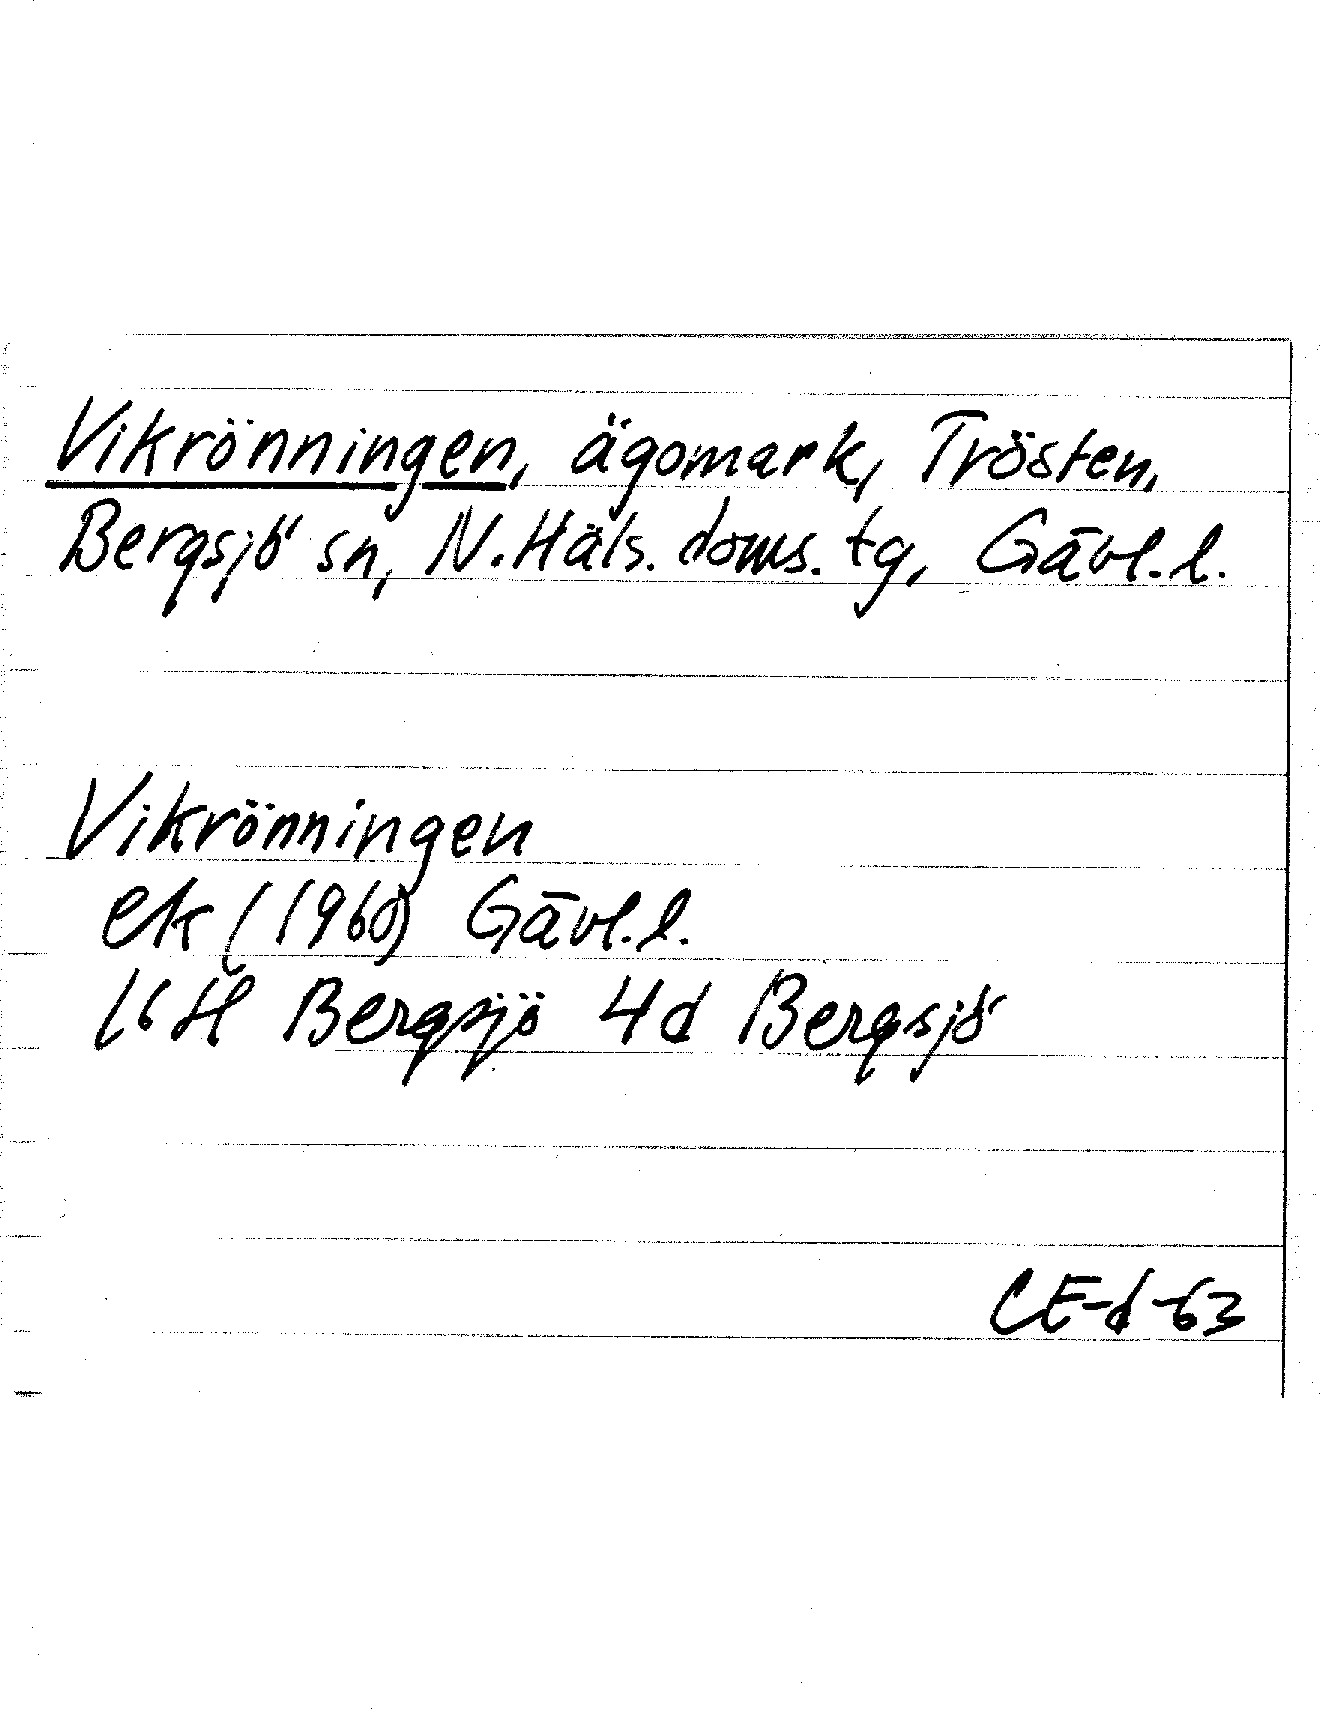 Vikrönningen, ägomark, Trösten,
Bergsjö sn, N.Häls. doms. tg, Gävl.l.
Vikrönningen
ek (1960) Gävl.l.
16 H Bergsjö 4d Bergsjö
CE-d-63